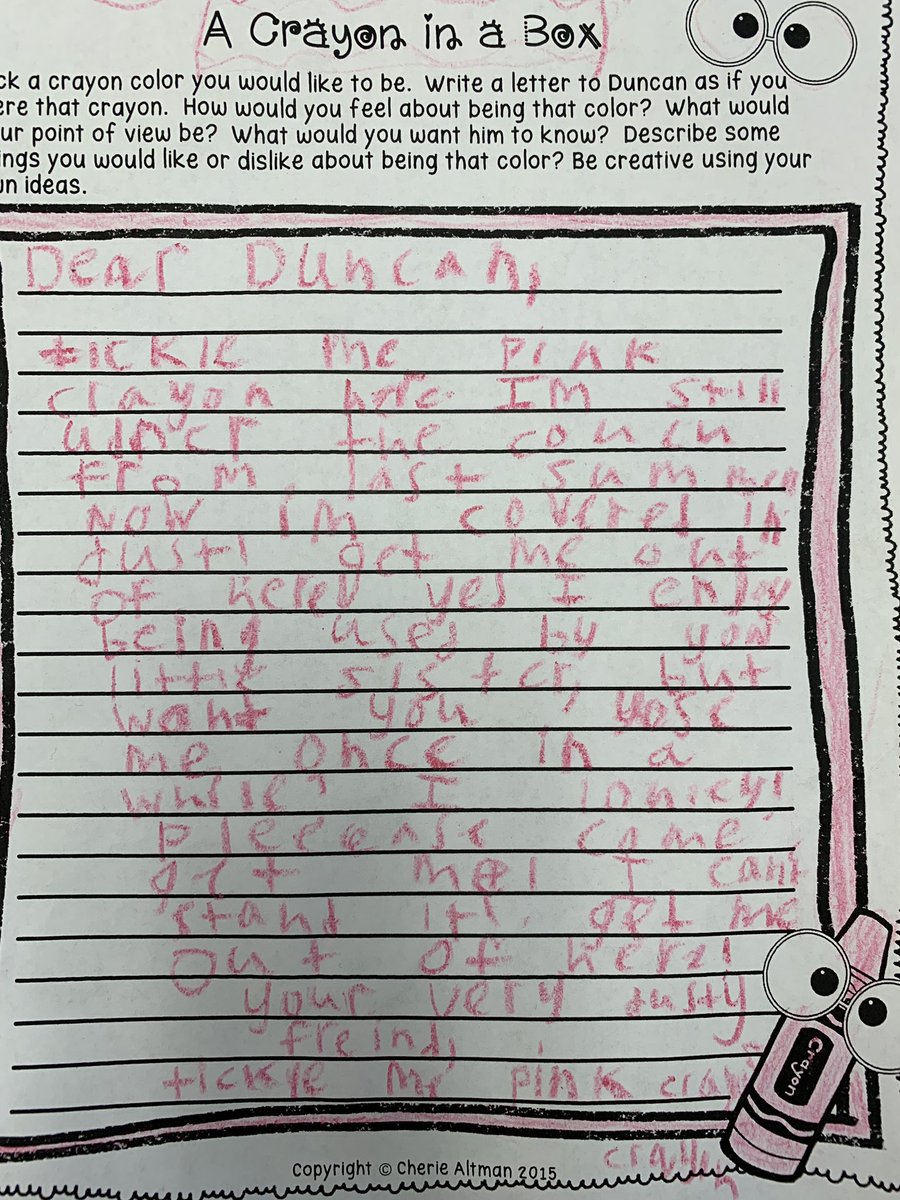 A Crayon in a Box
ck a crayon color you would like to be. Write a letter to Duncan as if you
ere that crayon. How would you feel about being that color? What would
ur point of view be? What would you want him to know? Describe some
ings you would like or dislike about being that color? Be creative using your
wn ideas.
Dear Duncan,
tickle me pink
crayon here Im still
under the couch
from last summer
Now im covered in
dust! get me out
of here! yes I enjoy
being used by your
little sister, but
want you yose
me once in a
while! I lonley!
pleeease come
get me! I can't
stand it! get me
out of here!
your very dusty
freind,
tickle me pink crayn
Crayon
crayon
Copyright © Cherie Altman 2015